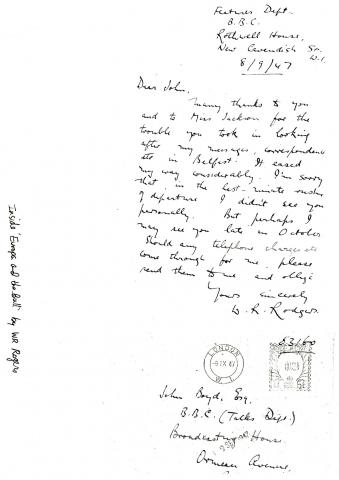 Features Dept.
B.B.C.
Rothwell House,
New Cavendish St.
W.1.
8/9/47
Dear John,
Many thanks to you
and to Miss Jackson for the
trouble you took in looking
after my messages, correspondence
etc in Belfast. It eased
my way considerably. I'm sorry
that, in the last-minute rush
of departure I didn't see you
personally. But perhaps I
may see you late in October
Should any telephone charges etc
come through for me, please
send them to me and oblige
Yours sincerely
W. R. Rodgers
53/60
LONDON
W.1
John Boyd, Esq.
B.B.C. (Talks Dept.)
Broadcasting House
Ormeau Avenue,
Inside 'Europa and the Bull' by WR Rogers